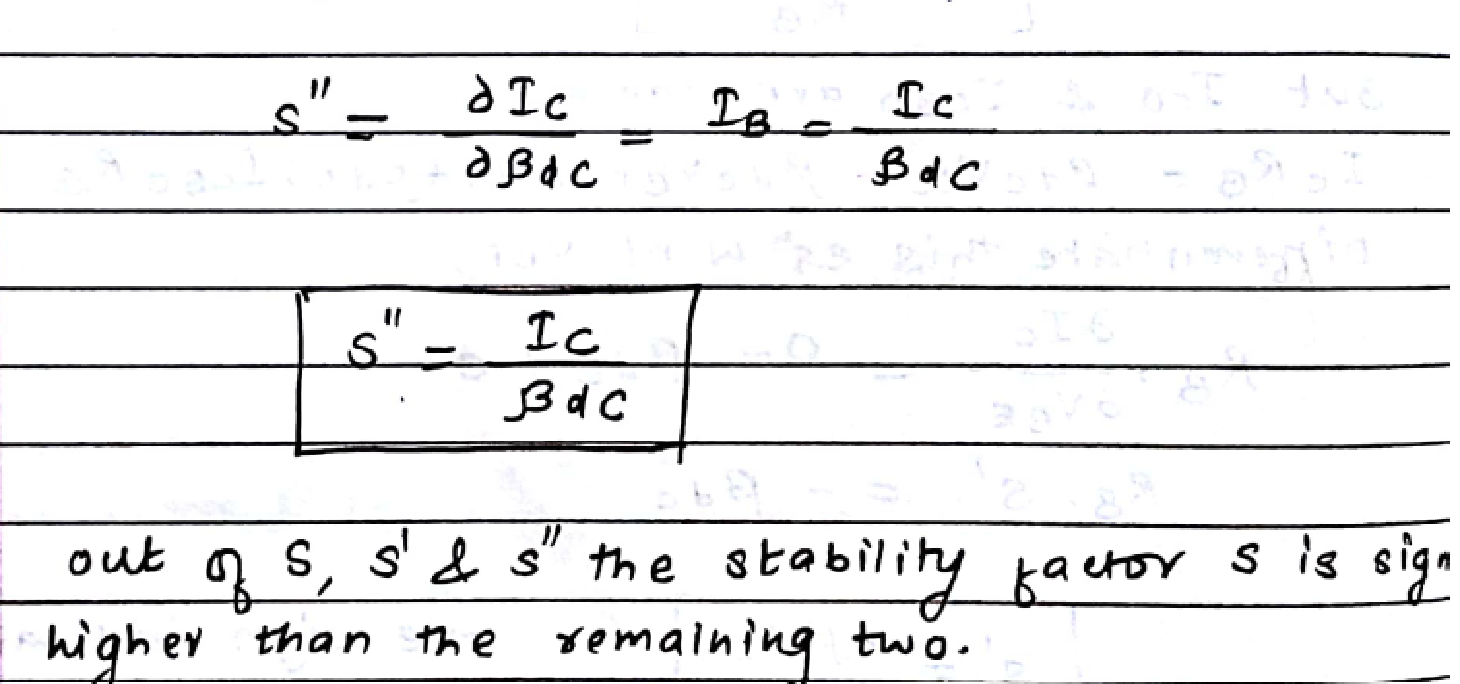 S'' = ∂Ic / ∂βdc = IB = Ic / βdc
S'' = Ic / βdc
out of S, S' & S'' the stability factor S is
higher than the remaining two.